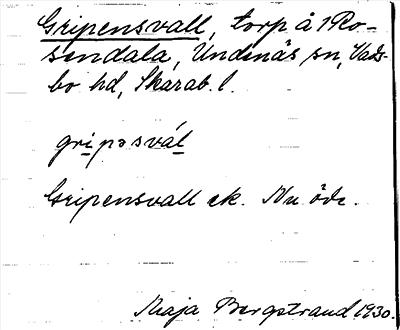 Gripensvall, torp å 1 Ro-
sendala, Undenäs sn, Vads-
bo hd, Skarab. l.
gripǝsvál
Gripensvall ek. Nu öde.
Maja Bergstrand 1930.